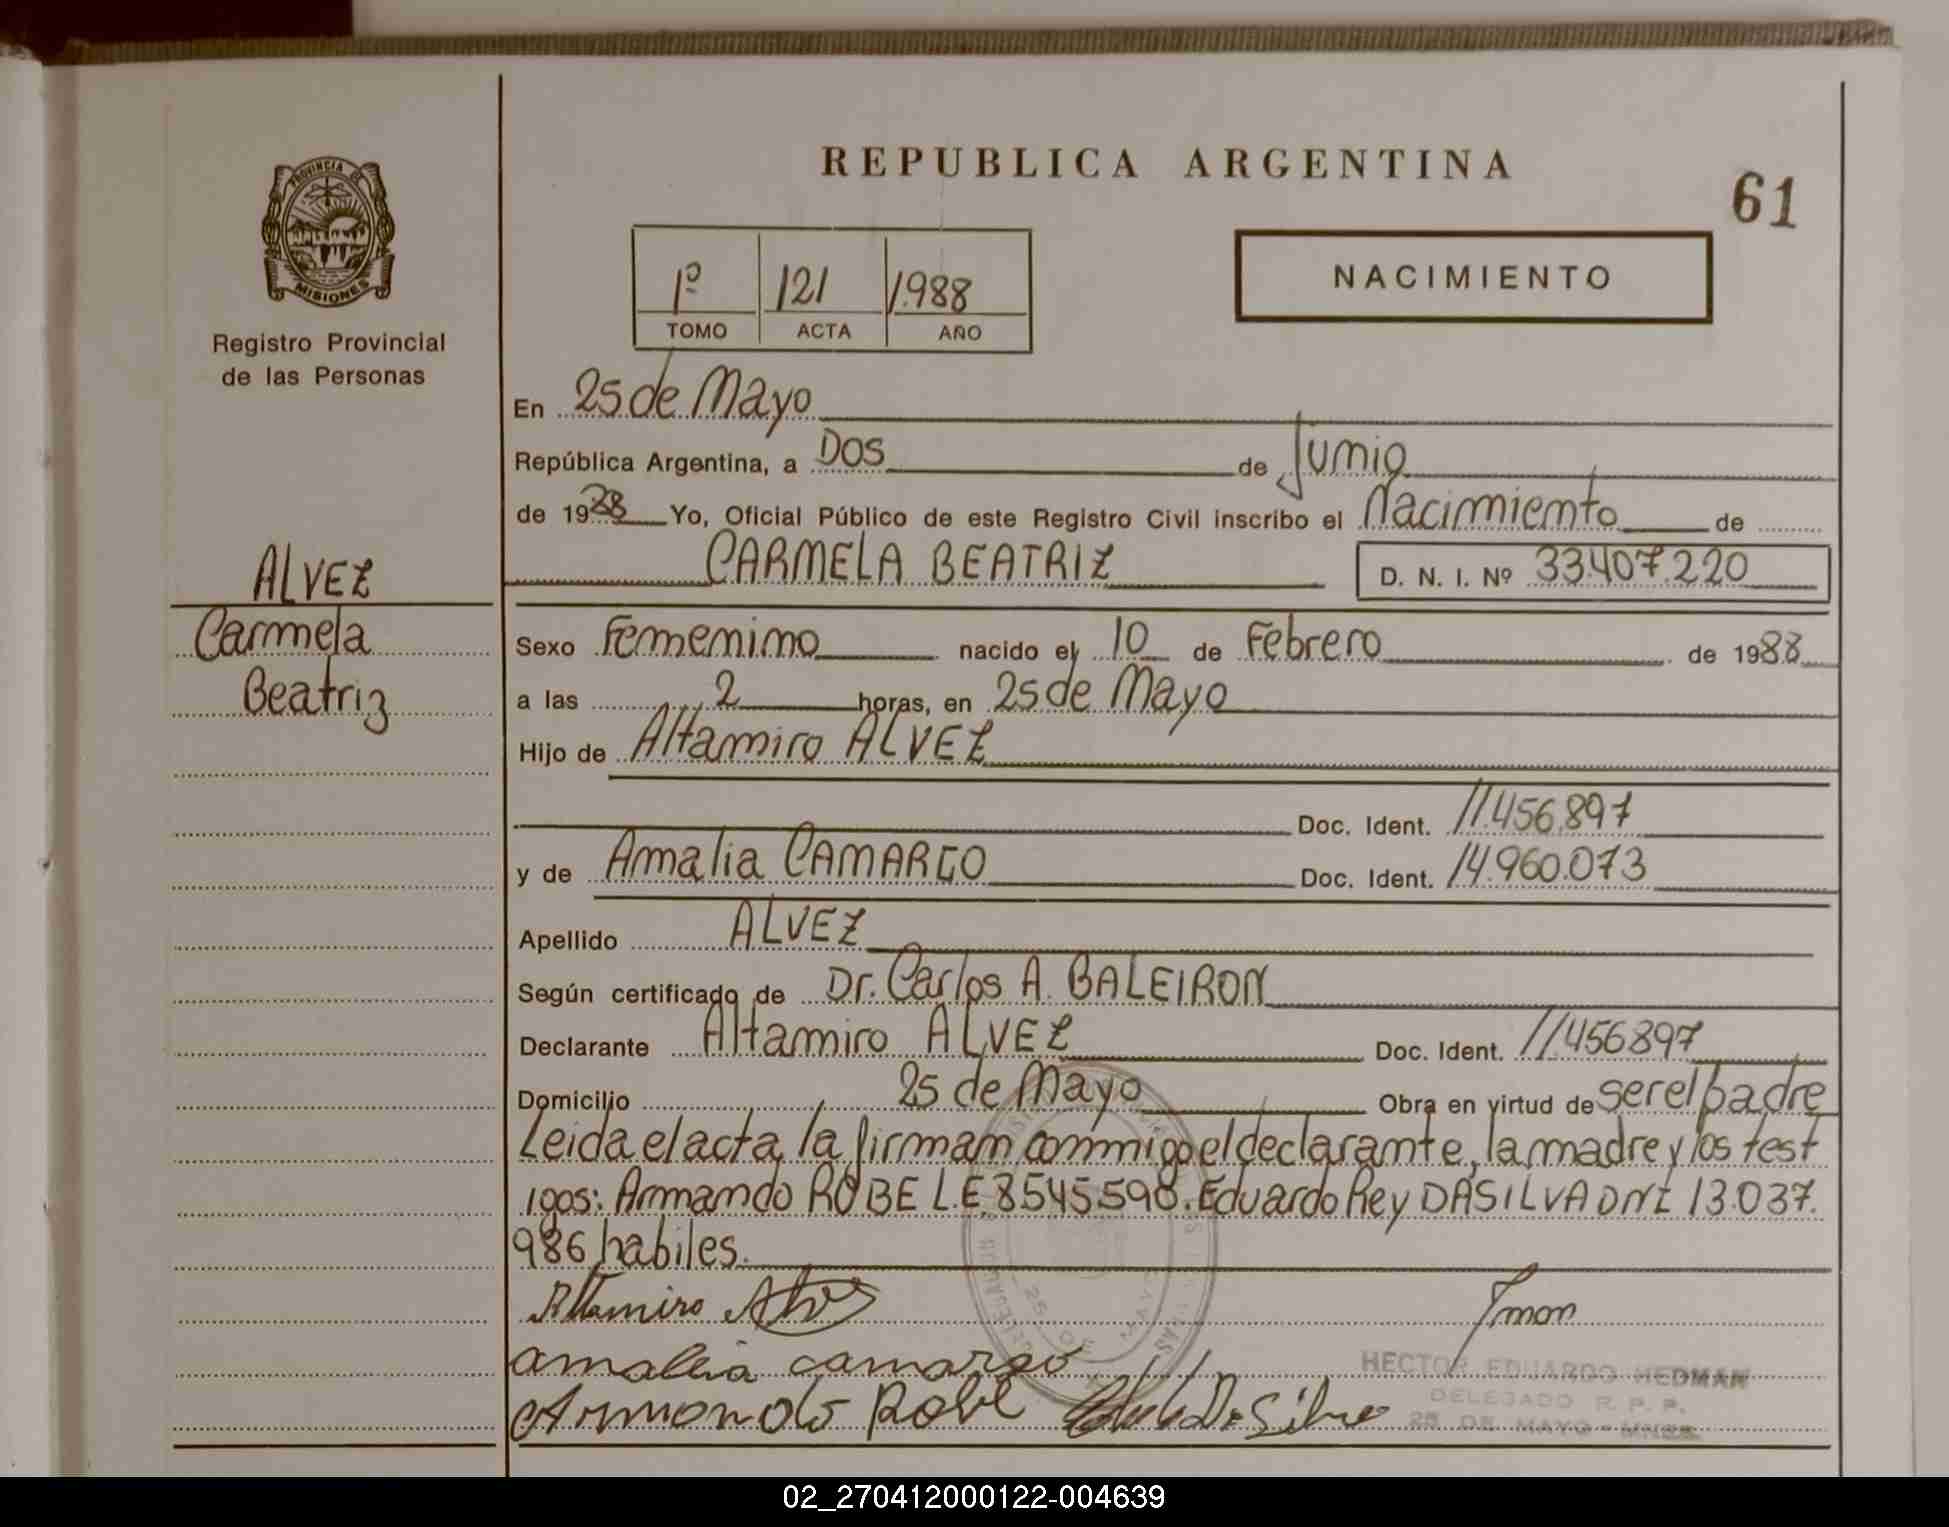 REPUBLICA ARGENTINA
61
PROVINCIA DE
MISIONES
Registro Provincial
de las Personas
1º 121 1.988
TOMO ACTA AÑO
NACIMIENTO
En 25 de Mayo
República Argentina, a Dos de Junio
de 1988 Yo, Oficial Público de este Registro Civil inscribo el Nacimiento de
CARMELA BEATRIZ D. N. I. Nº 33.407.220
ALVEZ
Carmela
Beatriz
Sexo Femenino nacido el 10 de Febrero de 1988
a las 2 horas, en 25 de Mayo
Hijo de Altamiro ALVEZ
Doc. Ident. 11.456.897
y de Amalia CAMARGO Doc. Ident. 14.960.073
Apellido ALVEZ
Según certificado de Dr. Carlos A. BALEIRON
Declarante Altamiro ALVEZ Doc. Ident. 11.456897
Domicilio 25 de Mayo Obra en virtud de ser el padre
Leida el acta, la firman conmigo el declarante, la madre y los test
igos: Armando ROBE L.E. 8.545.590. Eduardo Rey DASILVA DNI 13.037.
986 habiles.
Altamiro Alves
amalia camargo
Armando Robe Da Silva
HECTOR EDUARDO HEDMAN
DELEGADO R. P. P.
25 DE MAYO - MNES.
25 DE MAYO
02_270412000122-004639